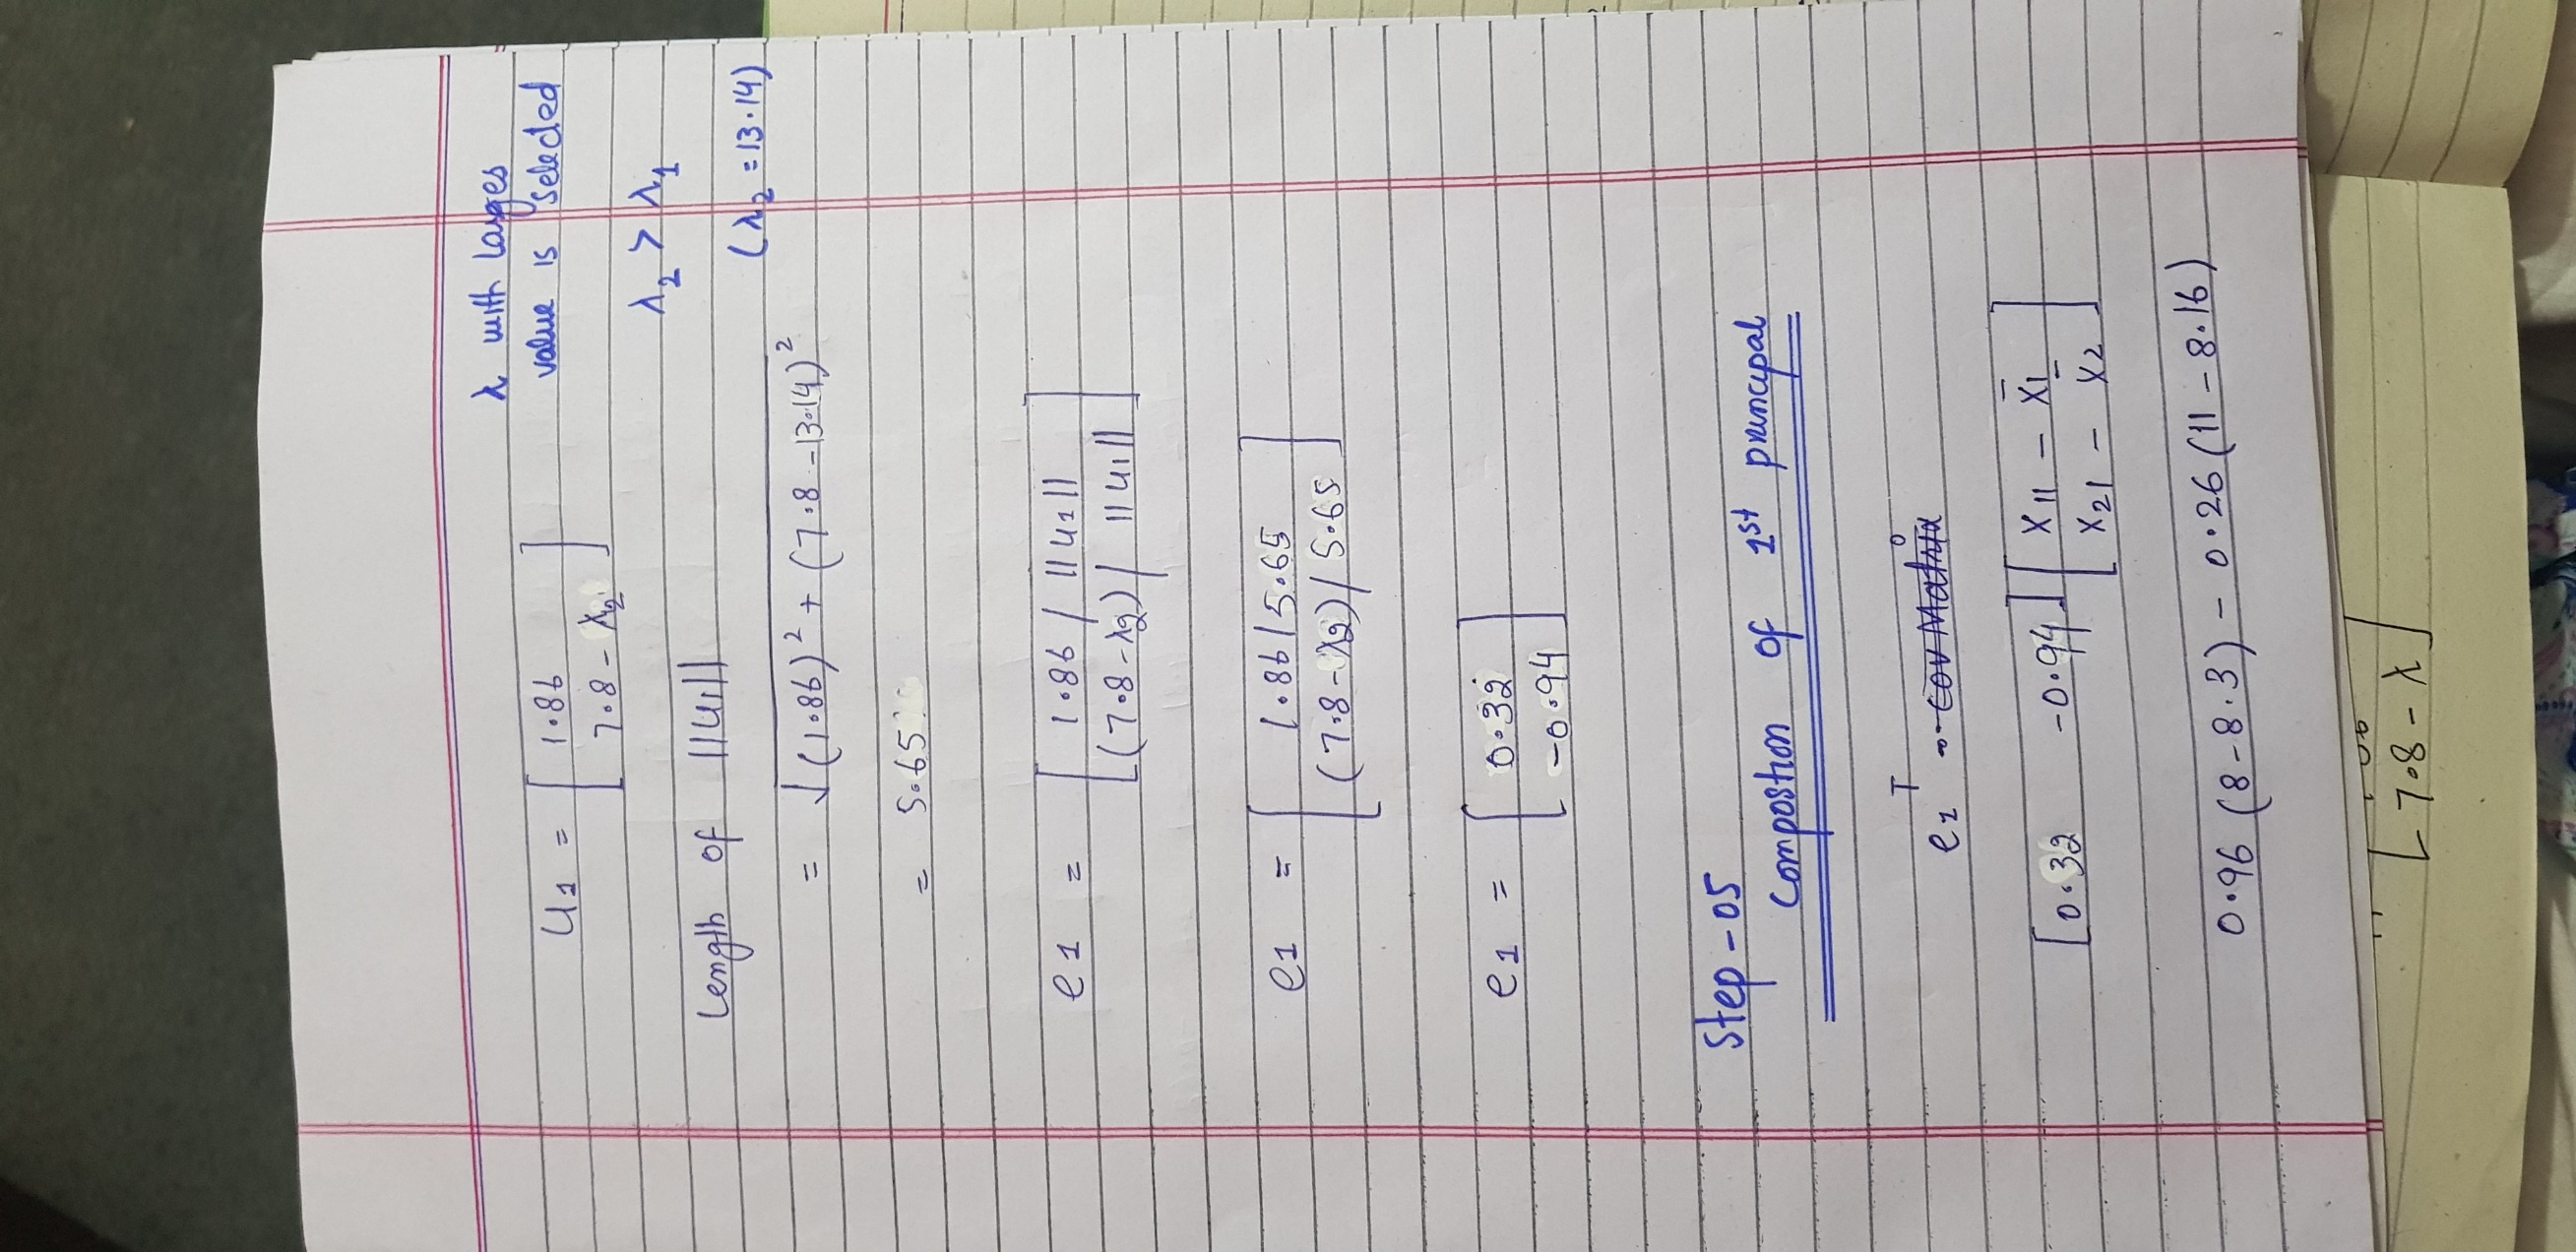 λ with larges
value is selected
U1 = [ 1.86
7.8 - λ2 ]
λ2 > λ1
Length of ||u1||
(λ2 = 13.14)
= √(1.86)² + (7.8 - 13.14)²
= 5.65
e1 = [ 1.86 / ||u1||
(7.8 - λ2) / ||u1|| ]
e1 = [ 1.86 / 5.65
(7.8 - λ2) / 5.65 ]
e1 = [ 0.32
-0.94 ]
Step - 05
Compostion of 1st principal
e1ᵀ Cov Matrix
[0.32 -0.94] [ X11 - X̄1
X21 - X̄2 ]
0.96 (8 - 8.3) - 0.26 (11 - 8.16)
[ 7.8 - λ ]